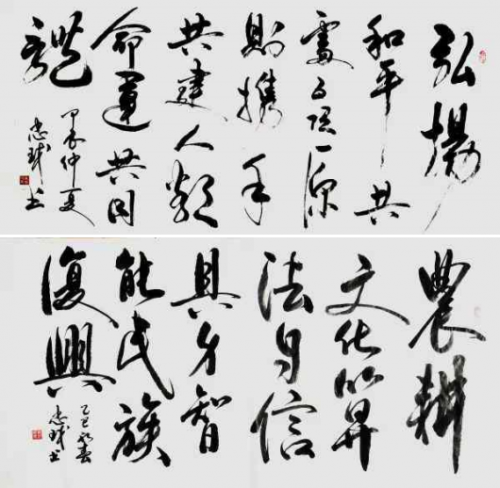 弘揚
和平共
處五項原
則携手
共建人類
命運共同
體
甲辰仲夏
忠書
農耕
文化
法自信
具身智
能民族
復興
乙巳新春
忠書